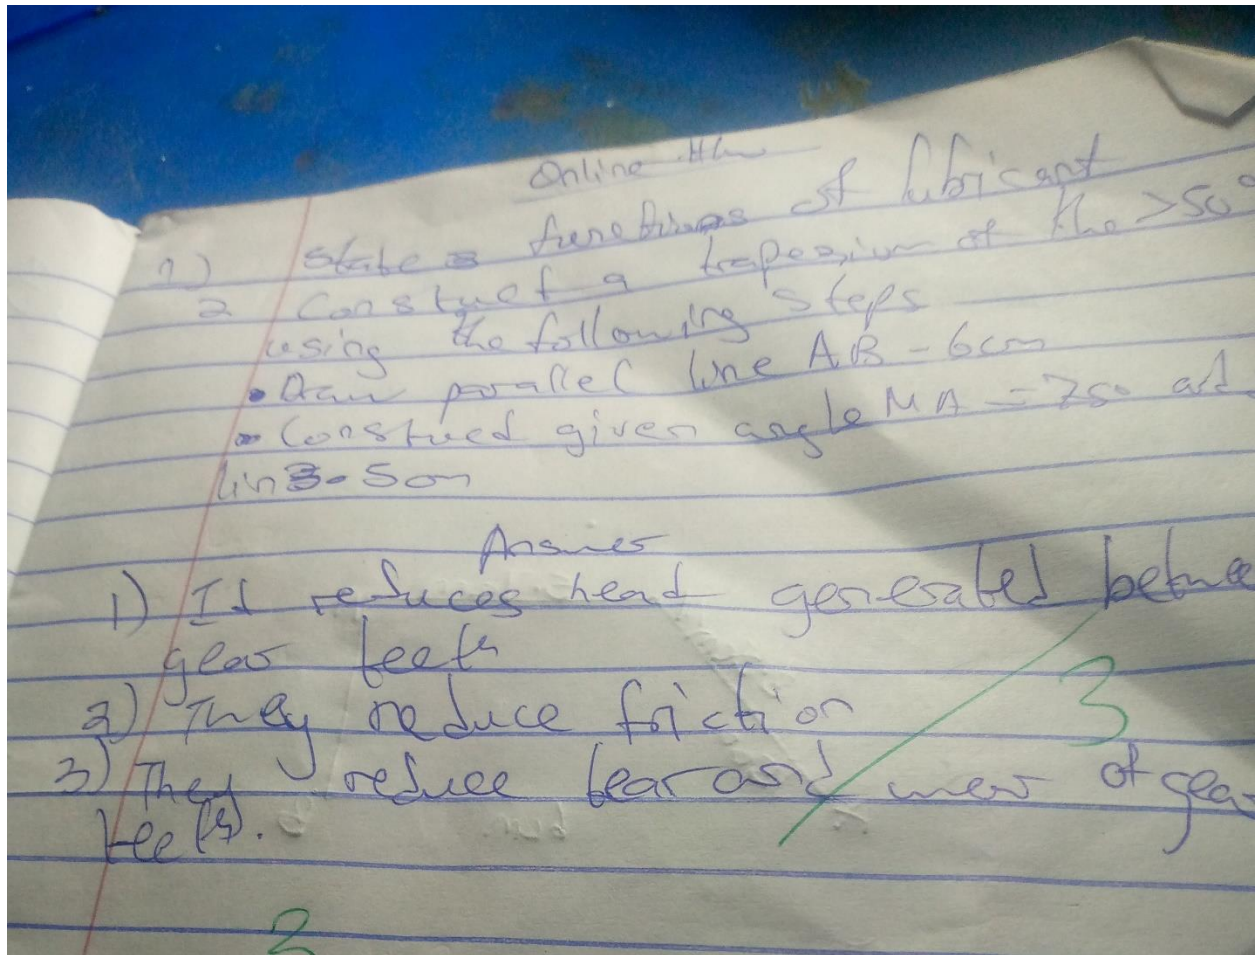 Online Hw
1) State 3 functions of lubricant
2 Constuct a trapezium of the >50°
using the following steps
• Draw parallel line AB - 6cm
• Constued given angle MA = 750 and
lin3.5cm
Answer
1) It reduces head generated betwee
gear teeth
2) They reduce friction
3) They reduce tear and wear of gear
teeth.
3
3